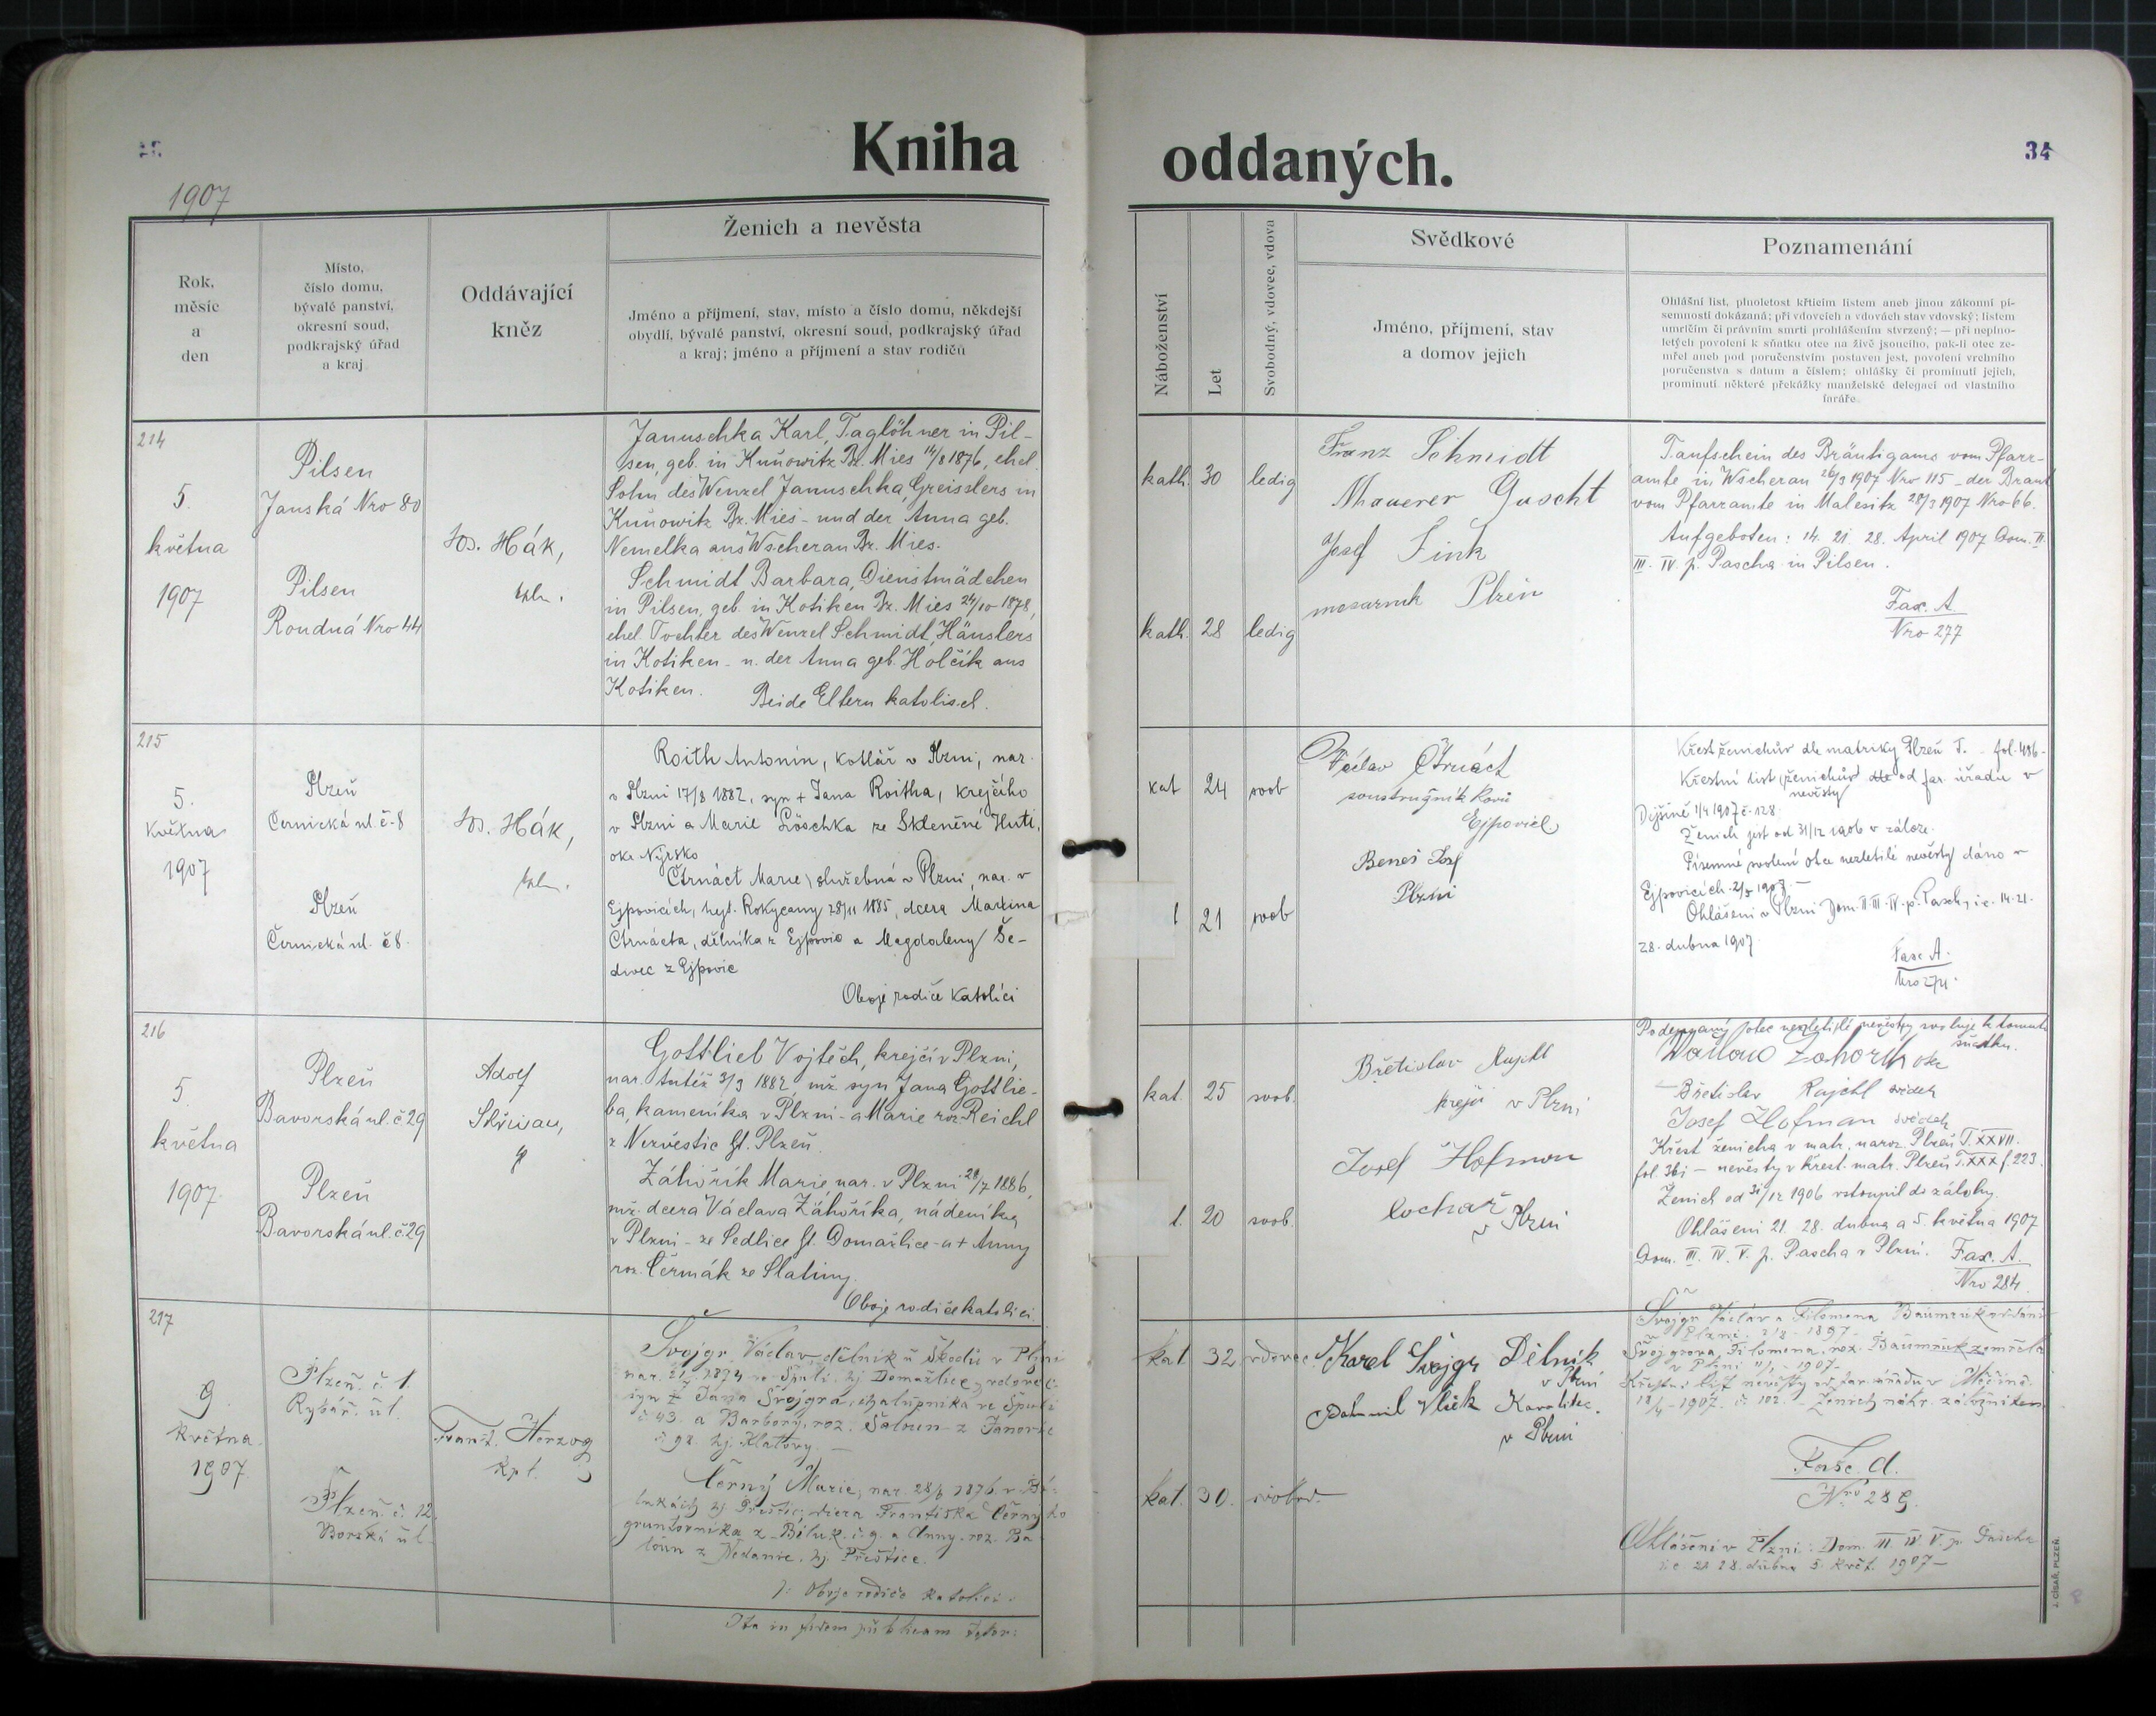 Kniha oddaných.
34
1907
Rok, měsíc a den
Místo, číslo domu, bývalé panství, okresní soud, podkrajský úřad a kraj
Oddávající kněz
Ženich a nevěsta
Jméno a příjmení, stav, místo a číslo domu, někdejší
obydlí, bývalé panství, okresní soud, podkrajský úřad
a kraj; jméno a příjmení a stav rodičů
Náboženství
Let
Svobodný, vdovec, vdova
Svědkové
Jméno, příjmení, stav
a domov jejich
Poznamenání
Ohlášní list, plnoletost křticím listem aneb jinou zákonní pí-
semností dokázaná; při vdovcích a vdovách stav vdovský; listem
umrlčím či právním smrti prohlášením stvrzený; — při neplno-
letých povolení k sňatku otce na živě jsoucího, pak-li otec ze-
mřel aneb pod poručenstvím postaven jest, povolení vrchního
poručenstva s datum a číslem; ohlášky či prominutí jejich,
prominutí některé překážky manželské delegací od vlastního
faráře.
214
5.
května
1907
Pilsen
Janská Nro 80
Pilsen
Roudná Nro 44
Jos. Hák,
Januschka Karl, Taglöhner in Pil-
sen, geb. in Kunowitz Bz. Mies 14/8 1876, ehel.
Sohn des Wenzel Januschka, Greisslers in
Kunowitz Bz. Mies - und der Anna geb.
Nemelka aus Wscherau Bz. Mies.
Schmidt Barbara, Dienstmädchen
in Pilsen, geb. in Kotiken Bz. Mies 24/10 1878,
ehel. Tochter des Wenzel Schmidt, Häuslers
in Kotiken - u. der Anna geb. Holčík aus
Kotiken. Beide Eltern katolisch.
kath. 30 ledig
kath. 28 ledig
Franz Schmidt
Josef Fink
Plzeň
Taufschein des Bräutigams vom Pfarr-
amte in Wscherau 26/3 1907 Nro 115 - der Braut
vom Pfarramte in Malesitz 28/3 1907 Nro 66.
Aufgeboten: 14. 21. 28. April 1907 Dom. II.
III. IV. p. Pascha in Pilsen.
Fasc. A.
Nro 277
215
5.
května
1907
Plzeň
Černická ul. č. 8
Plzeň
Černická ul. č 8.
Jos. Hák,
Roith Antonín, kotlář v Plzni, nar.
v Plzni 17/8 1882, syn + Jana Roitha, krejčího
v Plzni a Marie Löschka ze Skleněné Huti,
okr. Nýrsko
Čtrnáct Marie, služebná v Plzni, nar. v
Ejpovicích, hejt. Rokycany 28/11 1885, dcera Martina
Čtrnácta, dělníka z Ejpovic a Magdaleny Še-
divec z Ejpovic
Oboje rodiče katolíci
kat 24 svob
21 svob
Václav Čtrnáct
soustružník kovů
Ejpovice
Beneš Josef
Plzni
Křest ženichův dle matriky Plzeň T. - fol. 486 -
Křestní list (ženichův) dle od far. úřadu v
nevěsty
Dýšině 1/4 1907 č. 128.
Ženich jest od 31/12 1906 v záloze.
Písemné svolení otce nezletilé nevěsty dáno v
Ejpovicích 2/5 1907. -
Ohlášeni v Plzni Dom. II. III. IV. p. Pasch, i. e. 14. 21.
28. dubna 1907
Fasc A.
216
5.
května
1907.
Plzeň
Bavorská ul. č 29
Plzeň
Bavorská ul. č 29
Adolf
Gottlieb Vojtěch, krejčí v Plzni,
nar. tutéž 3/3 1882 mž. syn Jana Gottlie-
ba, kameníka v Plzni - a Marie roz. Reichl
z Nezvěstic hjt. Plzeň.
Záhořík Marie nar. v Plzni 28/7 1886,
mž. dcera Václava Záhoříka, nádeníka
v Plzni - ze Sedlice hjt. Domažlice - a + Anny
roz. Čermák ze Slatiny.
Oboje rodiče katolíci.
kat. 25 svob.
20 svob.
Břetislav Rajchl
krejčí v Plzni
Josef Hofman
v Plzni
Podepsaný otec nezletilé nevěsty svoluje k tomuto
sňatku.
Václav Záhořík otec
Břetislav Rajchl svědek
Josef Hofman svědek
Křest ženicha v matr. naroz. Plzeň T. XXVII.
fol. 361 - nevěsty v křest. matr. Plzeň T. XXX f. 223.
Ženich od 31/12 1906 vstoupil do zálohy.
Ohlášeni 21. 28. dubna a 5. května 1907
Dom. III. IV. V. p. Pascha v Plzni. Fasc. A.
Nro 284.
217
9.
května
1907.
Plzeň. č. 1.
Rybář. ul.
Plzeň. č. 12.
Borská ul.
Frant. Herzog
kpl.
Švojgr Václav, dělník u Škodů v Plzni
syn + Jana Švojgra, chalupníka ve Španí
č 43. a Barbory, roz. Šaloun z Janovic
hj. Klatovy. -
Černý Marie, nar. 28/6 1876 v Bí-
lukách hj. Přeštic, dcera Františka Černýho
gruntovníka z Bíluk. č. 9. a Anny. roz. Ba-
loun z Nedanic. hj. Přeštice.
Oboje rodiče katolíci.
Ita in fidem publicam
kat. 32 vdovec.
kat. 30. svobod.
Karel Švojgr Dělník
v Plzni
Bohumil Vlček
v Plzni
Švojgr Václav a Filomena Baumruk oddáni
v Plzni
Švojgrova, Filomena, roz. Baumruk zemřela
v Plzni 1907 -
Křestní list nevěsty od far. úřadu v Měčíně.
18/4 - 1907. č. 102. -
Fasc. A.
Nro 289.
Ohlášeni v Plzni: Dom. III. IV. V. p. Pascha
i. e. 21. 28. dubna 5. květ. 1907 -
J. CÍSAŘ, PLZEŇ.